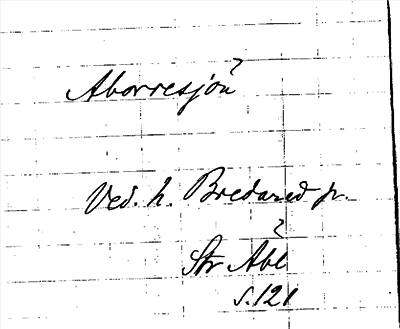 Aborresjön?
Ved. h. Bredared sn.
?
Str Abl
s. 121